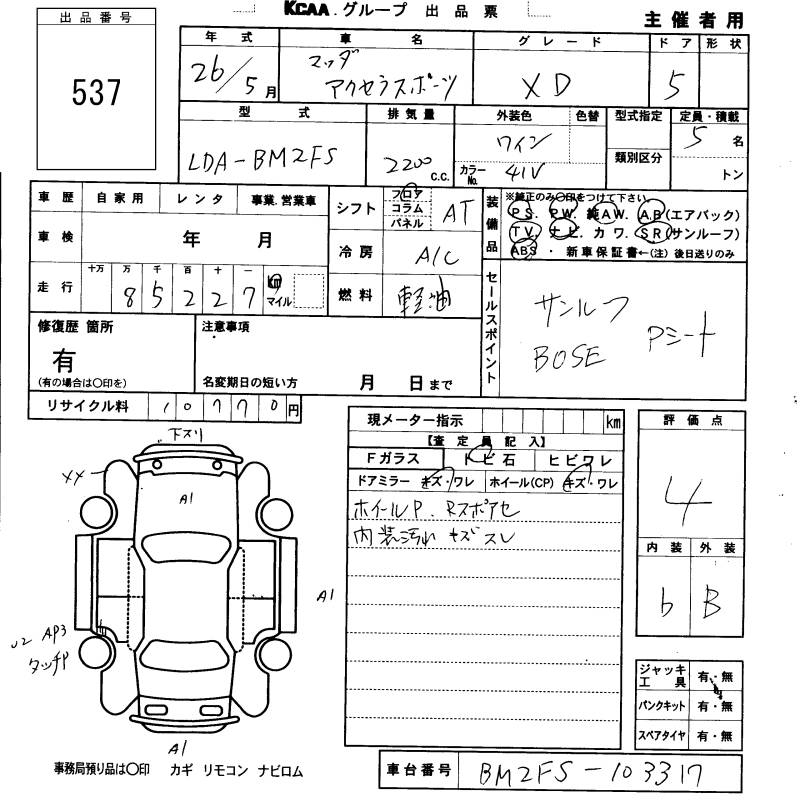 KCAA.グループ 出品票
主催者用
出品番号
537
年式 車名 グレード ドア 形状
26/5月 マツダ アクセラスポーツ XD 5
型式 排気量 外装色 色替 型式指定 定員・積載
LDA-BM2FS 2200 c.c. ワイン 5名
カラーNo. 41V 類別区分 トン
車歴 自家用 レンタ 事業.営業車
シフト フロア コラム パネル AT
装備品 ※純正のみ○印をつけて下さい
PS. PW. 純AW. A.B(エアバック)
TV. ナビ カワ. SR(サンルーフ)
ABS・ 新車保証書←(注)後日送りのみ
車検 年 月
冷房 A/C
走行 十万 万 千 百 十 一
85227 km マイル
燃料 軽油
セールスポイント
サンルーフ
BOSE Pシート
修復歴 箇所
有
(有の場合は○印を)
注意事項
名変期日の短い方 月 日まで
リサイクル料 10770円
現メーター指示 km
【査定員記入】
Fガラス トビ石 ヒビワレ
ドアミラー キズ・ワレ ホイール(CP) キズ・ワレ
ホイールP. Rスポアセ
内装汚れ キズスレ
評価点
4
内装 外装
b B
下スリ
XX
A1
A1
U2 AP3
タッチP
A1
ジャッキ工具 有・無
パンクキット 有・無
スペアタイヤ 有・無
事務局預り品は○印 カギ リモコン ナビロム
車台番号 BM2FS-103317